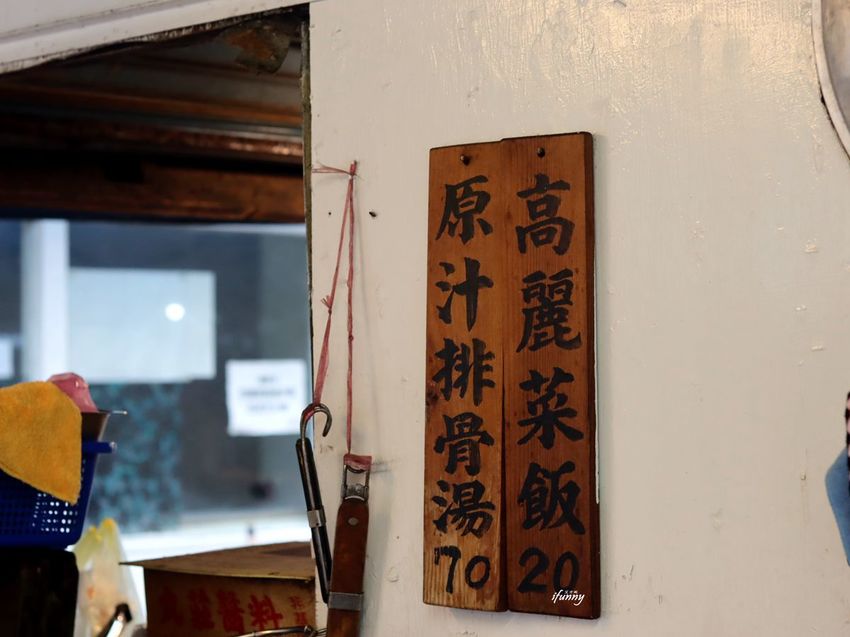 高麗菜飯20
原汁排骨湯70
ifunny